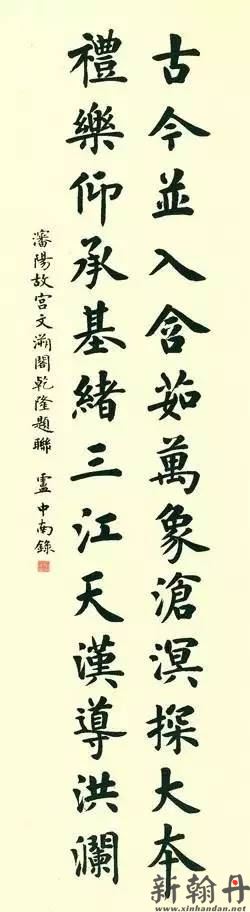 古今並入含茹萬象滄溟探大本
禮樂仰承基緒三江天漢導洪瀾
瀋陽故宮文溯閣乾隆題聯 盧中南錄
新翰丹
www.xinhandan.net